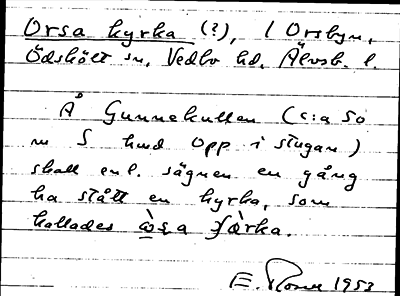 Orsa kyrka (?), / Orsbyn,
Ödskölt sn, Vedbo hd, Älvsb. l.
Å Gunnekullen (c:a 50
m S hmd opp i stugan)
skall enl. sägnen en gång
ha stått en kyrka, som
kallades
E. 1953